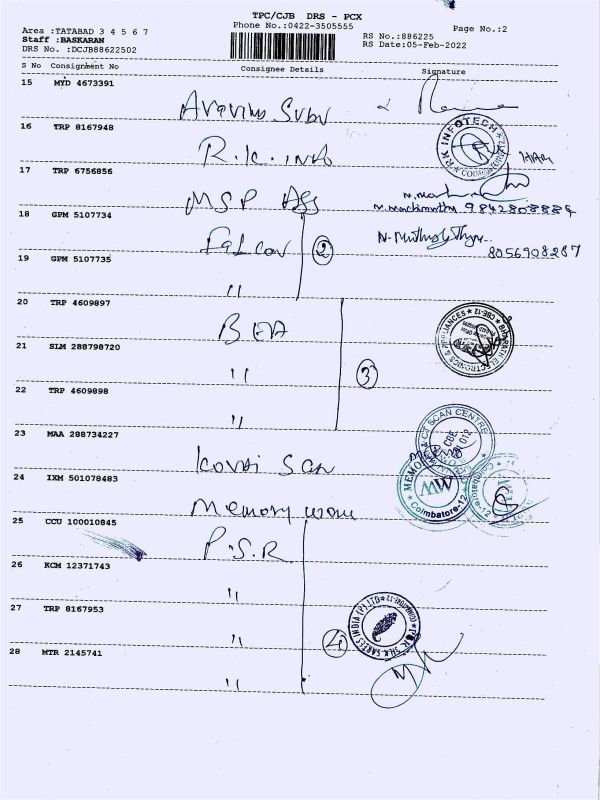 TPC/CJB DRS - PCX
Area :TATABAD 3 4 5 6 7 Phone No.:0422-3505555 Page No.:2
Staff :BASKARAN RS No.:886225
DRS No. :DCJB88622502 RS Date:05-Feb-2022
S No Consignment No Consignee Details Signature
15 MYD 4673391
16 TRP 8167948
R.K. INFOTECH
COIMBATORE
17 TRP 6756856
MSP
9842808884
18 GPM 5107734
Falcon 2
8056908287
19 GPM 5107735
"
20 TRP 4609897
BEA
BHARATH ELECTRONICS & APPLIANCES
CBE-12
21 SLM 288798720
" 3
22 TRP 4609898
"
23 MAA 288734227
Kovai Scan
& CT SCAN CENTRE
CBE
24 IXM 501078483
Memory
MW
Coimbatore-12
25 CCU 100010845
P.S.R
26 KCM 12371743
"
27 TRP 8167953
"
SILK SAREES INDIA (P) LTD
COIMBATORE-12
28 MTR 2145741 4
"